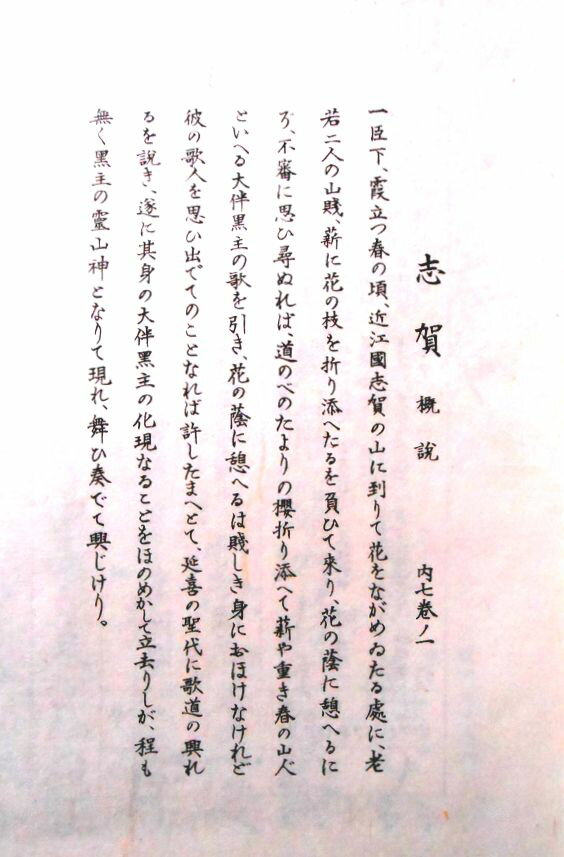 志賀 概説 内七巻ノ一
一臣下、霞立つ春の頃、近江國志賀の山に到りて花をながめゐたる處に、老
若二人の山賤、薪に花の枝を折り添へたるを負ひて來り、花の蔭に憩へるに
ぞ、不審に思ひ尋ぬれば、道のべのたよりの櫻折り添へて薪や重き春の山人
といへる大伴黒主の歌を引き、花の蔭に憩へるは賤しき身におほけなけれど
彼の歌人を思ひ出でてのことなれば許したまへとて、延喜の聖代に歌道の興れ
るを説き、遂に其身の大伴黒主の化現なることをほのめかして立去りしが、程も
無く黒主の靈山神となりて現れ、舞ひ奏でて興じけり。